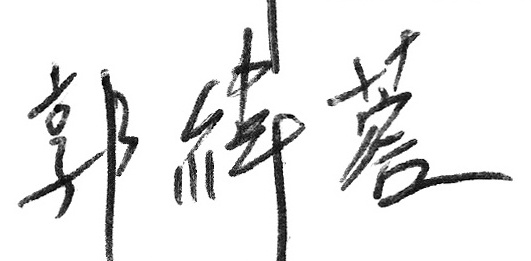 郭緯蓉